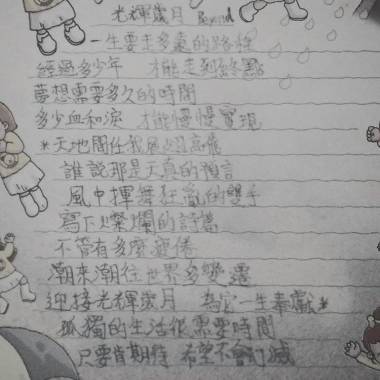 光輝歲月 Beyond
一生要走多遠的路程
經過多少年 才能走到終點
夢想需要多久的時間
多少血和淚 才能慢慢實現
*天地間任我展翅高飛
誰說那是天真的預言
風中揮舞狂亂的雙手
寫下燦爛的詩篇
不管有多麼疲倦
潮來潮往世界多變遷
迎接光輝歲月 為它一生奉獻*
孤獨的生活很需要時間
只要肯期待 希望不會幻滅